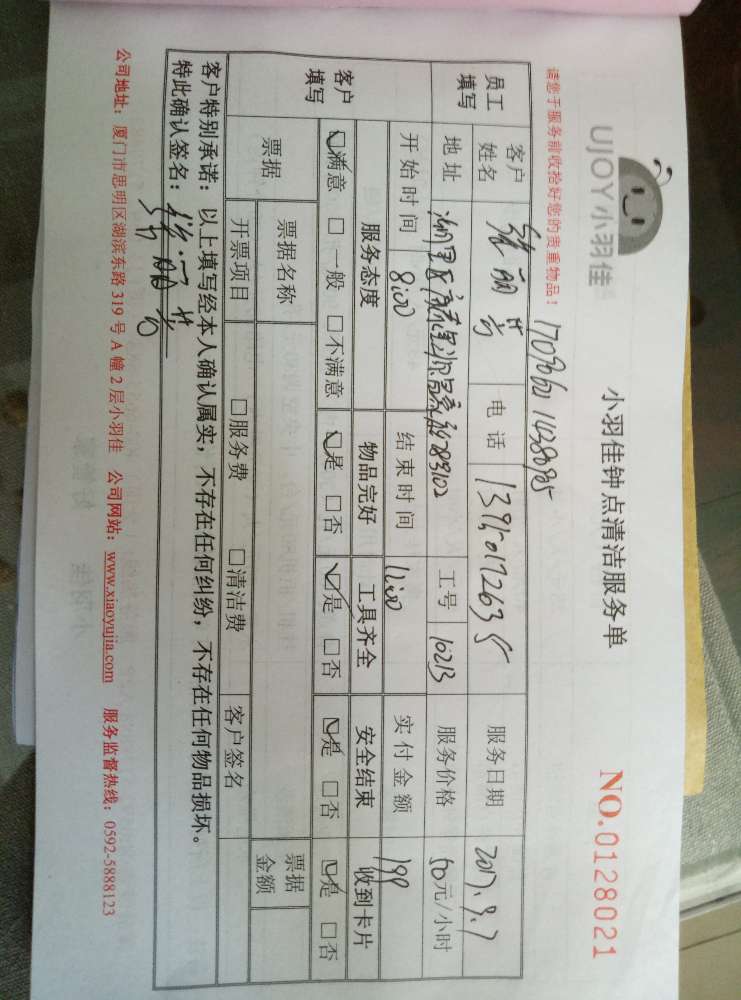 UJOY小羽佳
小羽佳钟点清洁服务单
NO.0128021
请您于服务前收拾好您的贵重物品！
员工填写 客户姓名 张丽芳 电话 13950172635 服务日期 2017.9.7
地址 工号 10213 服务价格 50元/小时
开始时间 8:00 结束时间 11:00 实付金额 199
客户填写 服务态度 物品完好 工具齐全 安全结束 收到卡片
☑满意 □一般 □不满意 ☑是 □否 ☑是 □否 ☑是 □否 ☑是 □否
票据 票据名称 票据金额
开票项目 □服务费 □清洁费 客户签名
客户特别承诺：以上填写经本人确认属实，不存在任何纠纷，不存在任何物品损坏。
特此确认签名：
公司地址：厦门市思明区湖滨东路319号A幢2层小羽佳 公司网站：www.xiaoyujia.com 服务监督热线：0592-5888123